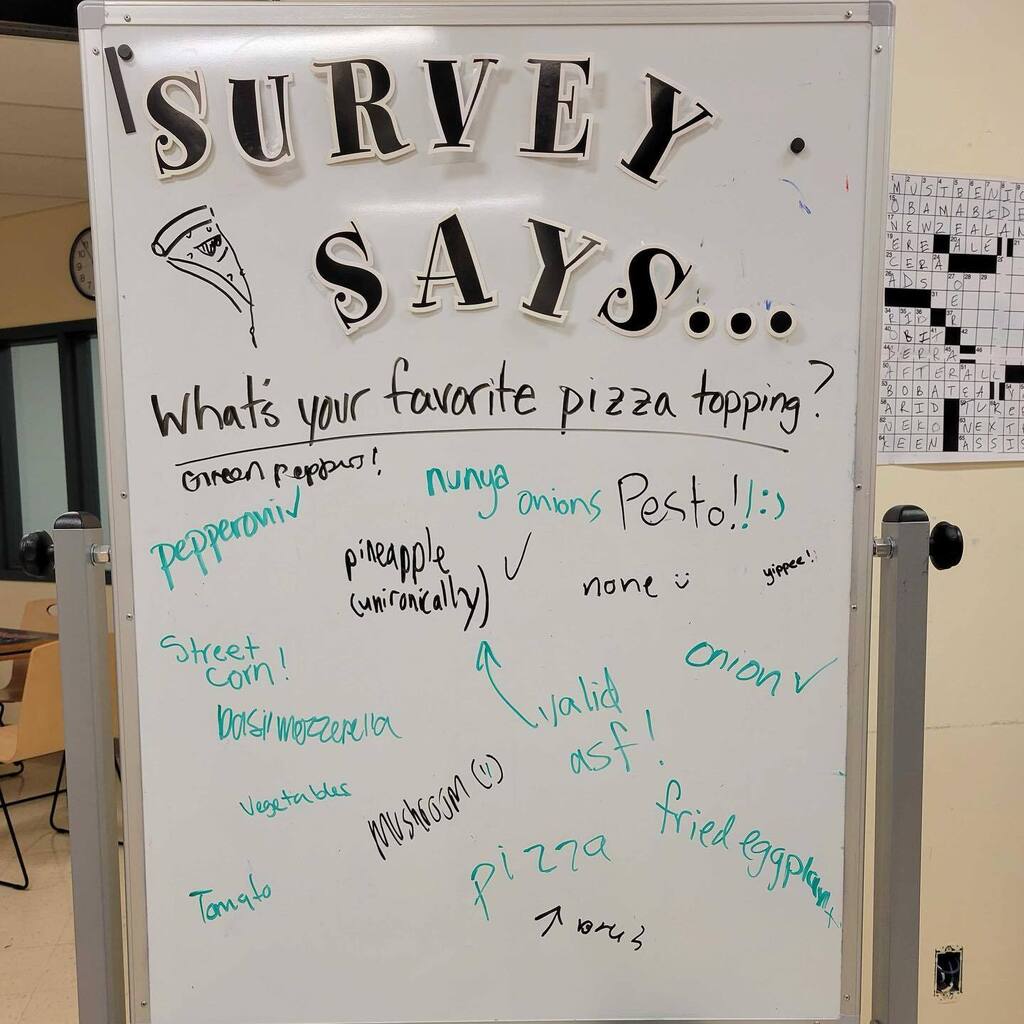 SURVEY
SAYS...
What's your favorite pizza topping?
Green peppers!
nunya
onions
Pesto!! :)
pepperoni ✓
pineapple ✓
(unironically)
none
yippee!
Street
corn!
onion ✓
valid
asf!
basil mozzerella
vegetables
mushroom (!!)
fried eggplant
pizza
Tomato
MUSTBENI
OBAMABIDE
NEWZEALAN
ERE ALE
CERA
ADS
OBIT
DERRA
AFTERALL
BOBATEA
ARID
NEKO NEXT
KEEN ASSIS